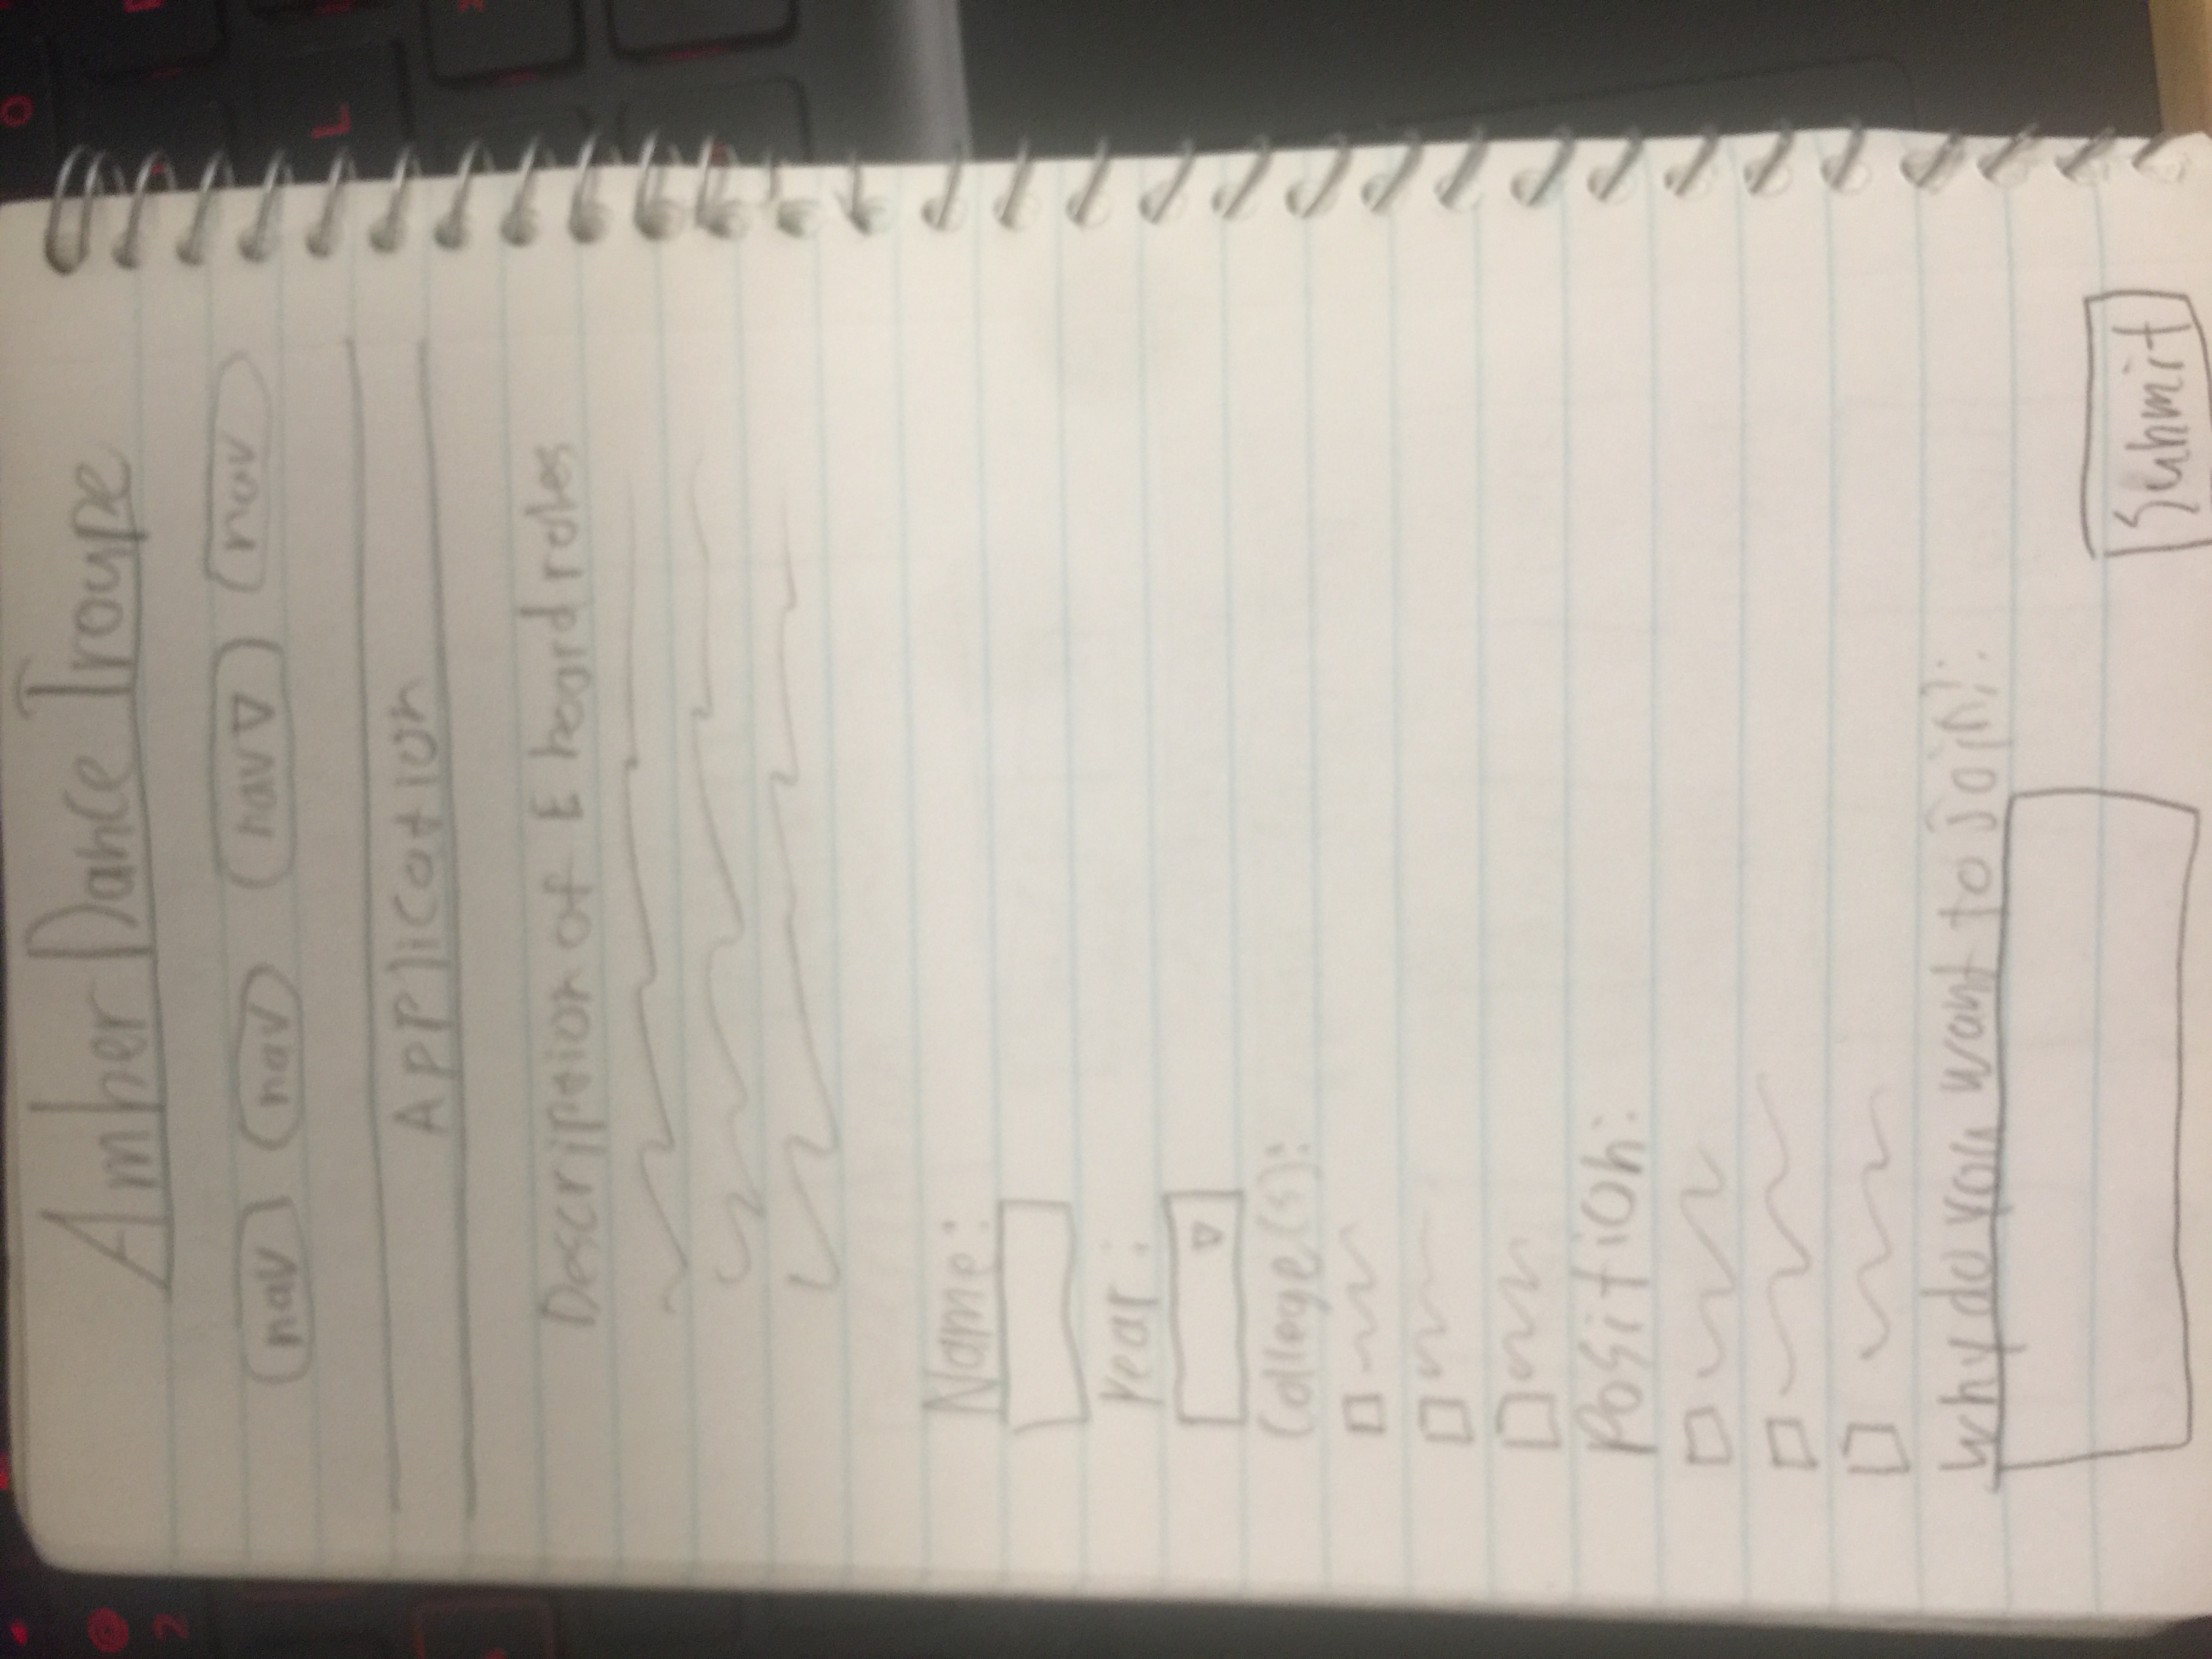 Amber Dance Troupe
nav nav nav nav
Application
Description of E board roles
Name:
Year:
College(s):
Position:
Why do you want to join?:
Submit
2
L